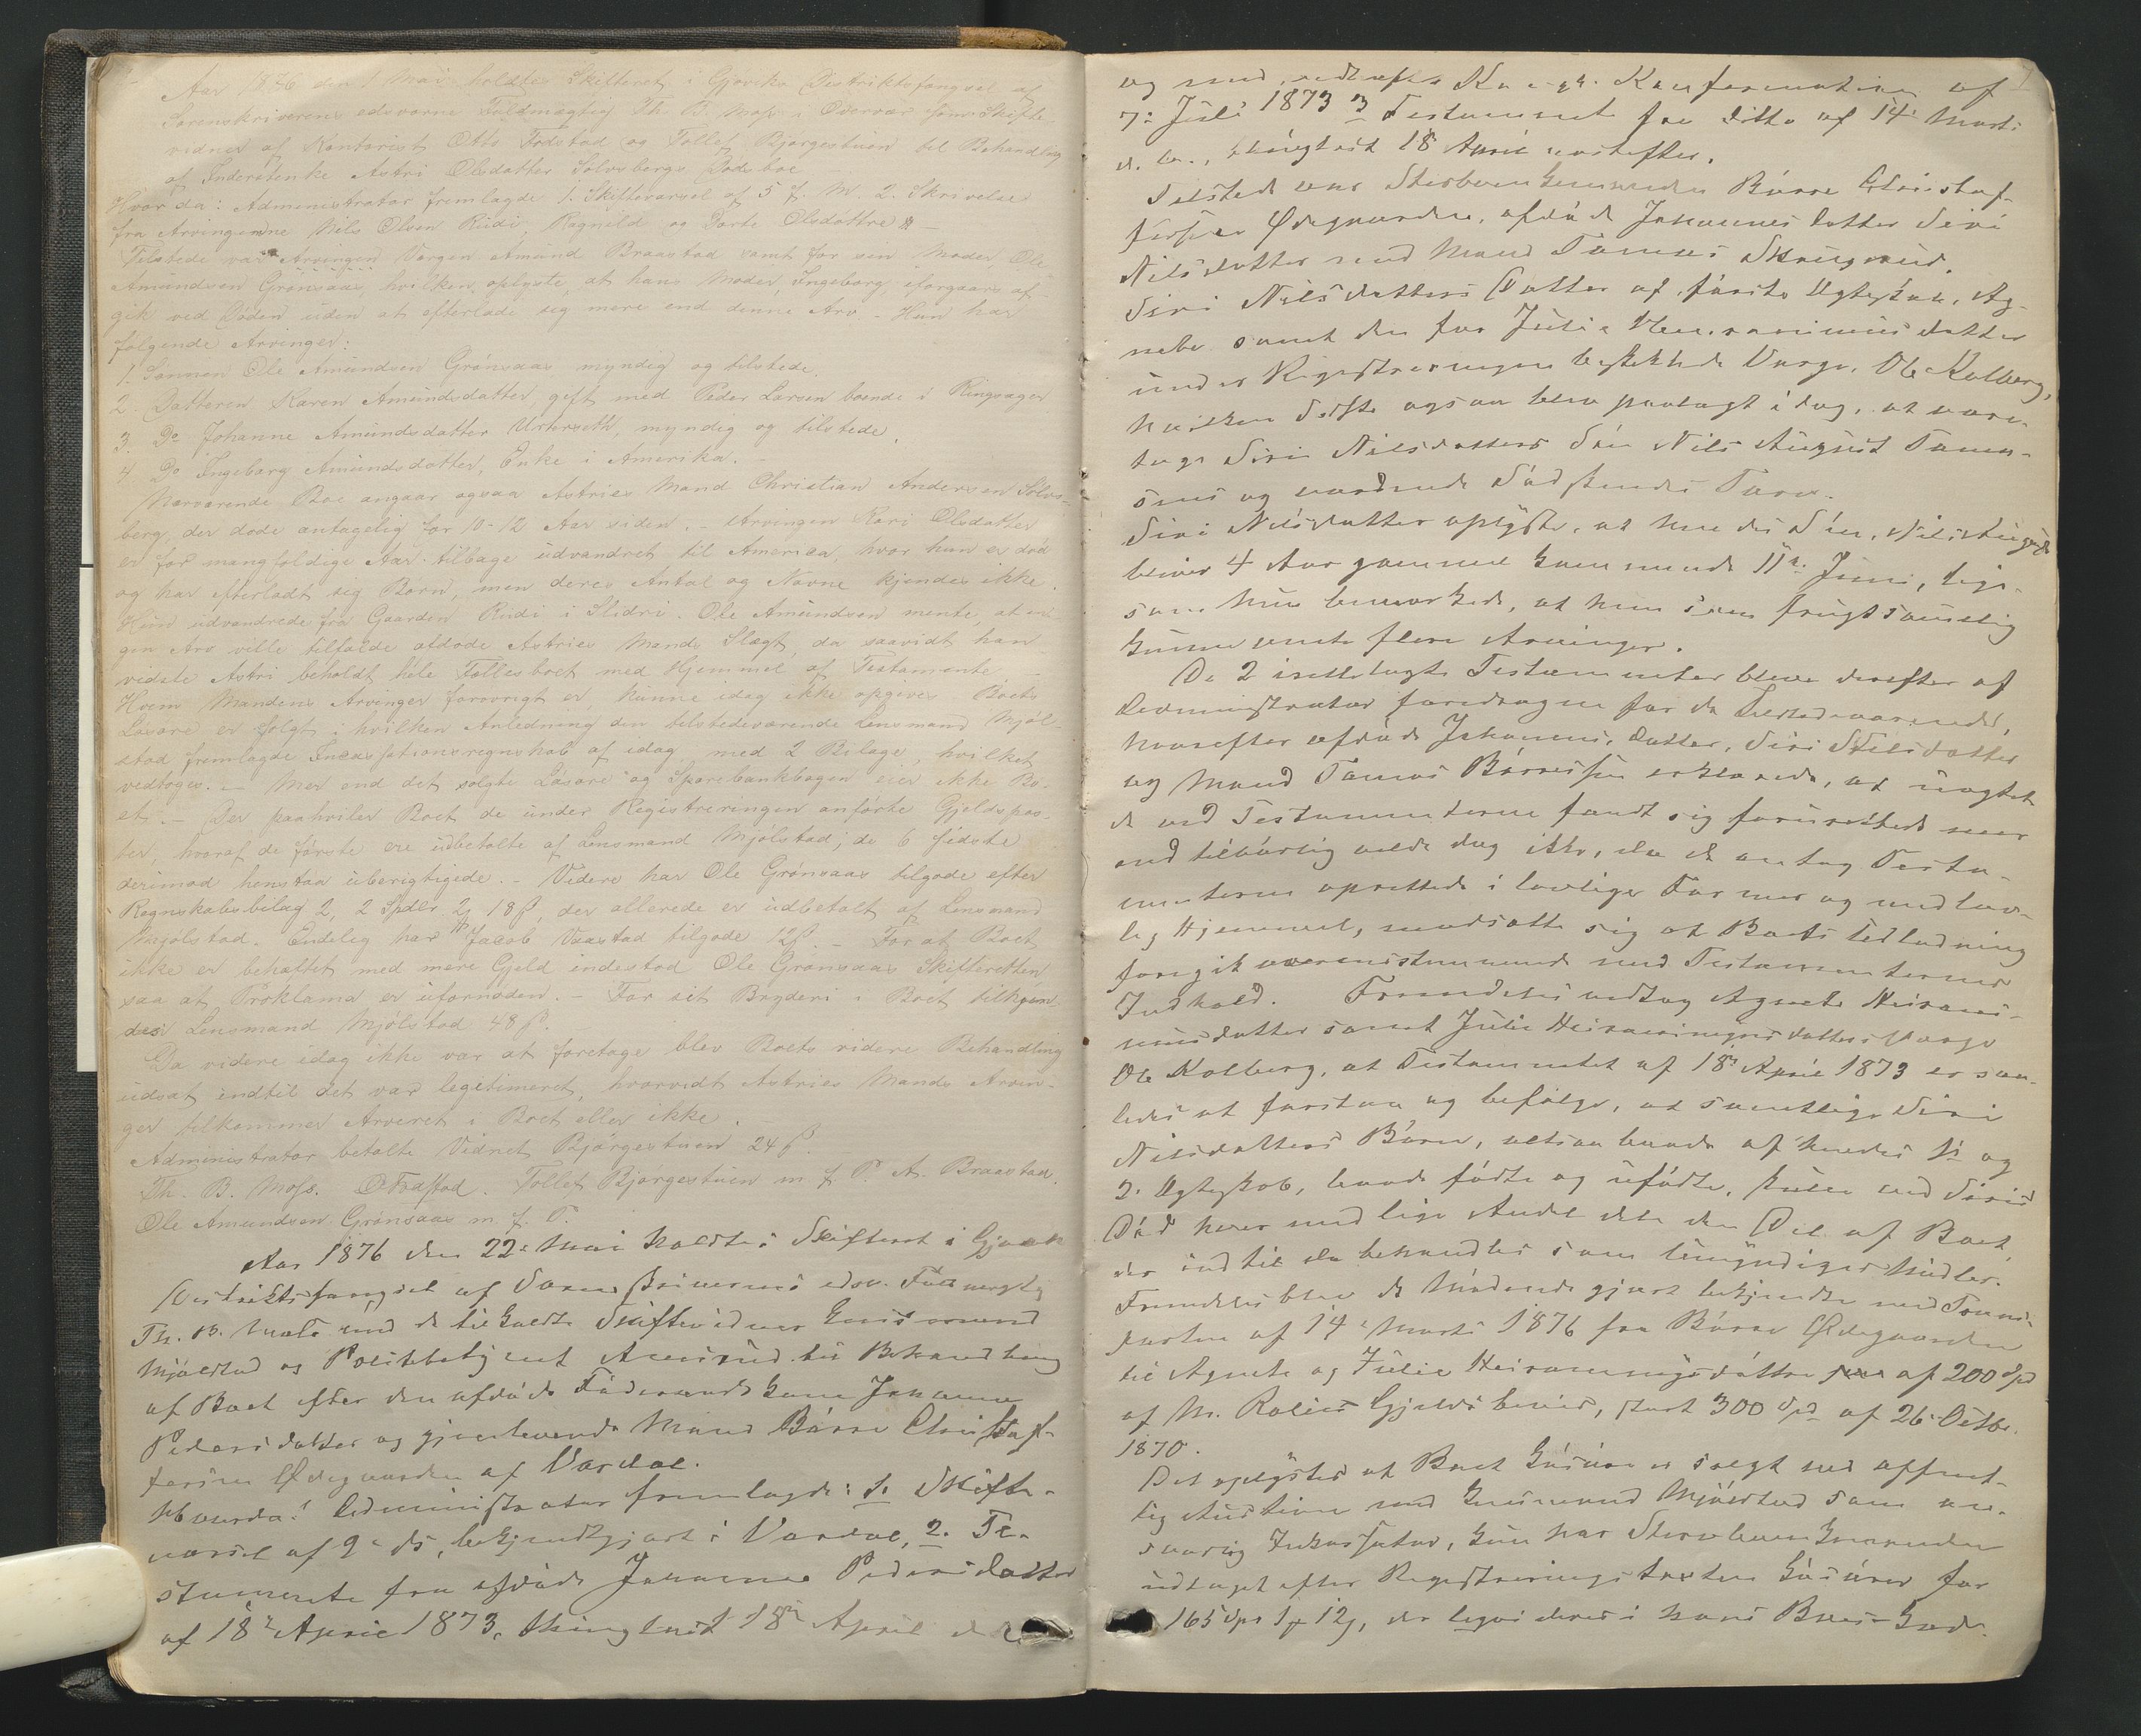 Aar 1876 den 1 Mai holdtes Skifteret i Gjøviks Distriktsfængsel af
Sorenskriverens edsvorne Fuldmægtig Th. B. Moss i Overvær som Skifte-
vidner af Kontorist Otto Fodstad og Tollef Bjørgestuen til Behandling
af Inderstenke Astri Olsdatter Solvsbergs Dødsboe
Hvorda: Administrator fremlagde 1. Skiftevarsel af 5 f. M. 2. Skrivelse
fra Arvingerne Nils Olsen Rudi, Ragnild og Dorte Olsdattre
Tilstede var Arvingen Vergen Amund Braastad samt for sin Moder Ole
Amundsen Grønsaas, hvilken oplyste, at hans Moder, Ingeborg iforgaars af-
gik ved Døden uden at efterlade sig mere end denne Arv - Hun har
følgende Arvinger:
1. Sønnen Ole Amundsen Grønsaas myndig og tilstede.
2 Datteren Karen Amundsdatter, gift med Peder Larsen boende i Ringsager
3. Do Johanne Amundsdatter myndig og tilstede.
4 Do Ingeborg Amundsdatter, Enke i Amerika.
Nærværende Boe angaar ogsaa Astries Mand Christian Andersen Solvs-
berg, der døde antagelig for 10-12 Aar siden. - Arvingen Kari Olsdatter
er for mangfoldige Aar tilbage udvandret til America, hvor hun er død
og har efterladt sig Børn, men deres Antal og Navne kjendes ikke.
Hun udvandrede fra Gaarden Rudi i Slidri. Ole Amundsen mente, at in-
gen Arv ville tilfalde afdøde Astries Mands Slægt, da saavidt han
vidste Astri beholdt hele Fællesboet med Hjemmel af Testamente
Hvem Mandens Arvinger forøvrigt er, kunne idag ikke opgives. Boets
Løsøre er solgt i hvilken Anledning den tilstedeværende Lensmand Mjøl-
stad fremlagde Incassationsregnskab af idag med 2 Bilage, hvilket
vedtoges. - Mer end det solgte Løsøre og Sparebankbogen eier ikke Bo-
et. - Der paahviler Boet de under Registreringen anførte Gjeldspos-
ter, hvoraf de første ere udbetalte af Lensmand Mjølstad; de 6 sidste
derimod henstaa uberigtigede. - Videre har Ole Grønsaas tilgode efter
Regnskabsbilag 2, 2 Spdlr 2 18 ß, der allerede er udbetalt af Lensmand
Mjølstad. Endelig har Jacob Vaastad tilgode 12ß. - For at Boet
ikke er behæftet med mere Gjeld indestod Ole Grønsaas Skifteretten
saa at Proklama er ufornøden. - For sit Bryderi i Boet tilkjen-
des Lensmand Mjølstad 48 ß.
Da videre idag ikke var at foretage blev Boets videre Behandling
udsat indtil det var legitimeret, hvorvidt Astries Mands Arvin-
ger tilkommer Arveret i Boet eller ikke.
Administrator betalte Vidnet Bjørgestuen 24 ß.
Th. B. Moss. O Fodstad. Tollef Bjørgestuen m. f. P. A. Braastad.
Ole Amundsen Grønsaas m. f. P.
Aar 1876 den 22de Mai holdtes Skifteret i Gjøvik
Distriktsfængsel af Sorenskriverens edsv. Fuldmægtig
Th. B. Moss med de tilkaldte Skiftevidner Lensmand
Mjølstad og Politibetjent til Behandling
af Boet efter den afdøde Føderaadskone Johanne
Pedersdatter og gjenlevende Mand Børre Christof-
fersen Ødegaarden af Vardal.
Hvorda: Administrator fremlagde: 1. Skifte-
varsel af 9de ds, bekjendtgjort i Vardal, 2. Te-
stamente fra afdøde Johanne Pedersdatter
af 18de April 1873, thinglæst 18de April d.
og med vedhæftet Kongl. Konfirmation af
7de Juli 1873 3 Testamente fra ditto af 14de Marts
d. A., thinglæst 18 April næstefter.
Tilstede var Sterboenkemanden Børre Christof-
fersen Ødegaarden, afdøde Johannes Datter Siri
Nilsdatter med Mand Tomas Skougerud,
Siri Nilsdatters Datter af første Ægteskab, Ag-
nete samt den for Julie Hieronimusdatter
under Registreringen beskikkede Værge, Ole Kolberg,
hvilken Sidste ogsaa blev paalagt i dag, at vare-
tage Siri Nilsdatters Søn Nils August Tomas-
sens og vordende Sødskendes Tarv.
Siri Nilsdatter oplyste, at hendes Søn, Nils August
bliver 4 Aar gammel kommende 11te Juni, lige-
som hun bemærkede, at hun som frugtsommelig
kunne vente flere Arvinger.
De 2 itellagte Testamenter bleve derefter af
Administrator foredragne for de Tilstedeværende,
hvorefter afdøde Johannes Datter, Siri Nilsdatter
og Mand Tomas Børresen erklærede, at uagtet
de ved Testamenterne fandt sig forurettede mer
end tilbørlig vilde dog ikke, da de antog Testa-
menterne oprettede i lovlige Former og med lov-
lig Hjemmel, modsætte sig at Boets Udlodning
foregik overensstemmende med Testamenternes
Indhold. Fremdeles vedtog Agnete Hieroni-
musdatter samt Julie Hieronimusdatters Værge
Ole Kolberg, at Testamentet af 18de April 1873 er saa-
ledes at forstaa og befølge, at samtlige Siri
Nilsdatters Børn, altsaa baade af hendes 1ste og
2. Ægteskab, baade fødte og ufødte, skulle ved Siris
Død hver med lige Andel dele den Del af Boet,
der indtil da behandles som Umyndiges Midler.
Fremdeles blev de Mødende gjort bekjendte med Trans-
porten af 14de Marts 1876 fra Børre Ødegaarden
til Agnete og Julie Hieronimusdøttre af 200 Spd
af M. Gjeldsbevis, stort 300 Spd af 26. Octbr.
1870.
Det oplystes at Boets Løsøre er solgt ved offent-
lig Auktion med Lensmand Mjølstad som an-
svarlig Inkassator, kun har Sterboenkemanden
udtaget efter Registreringstaxten Løsøre for
165 Spd 1 12, der ligeledes i hans